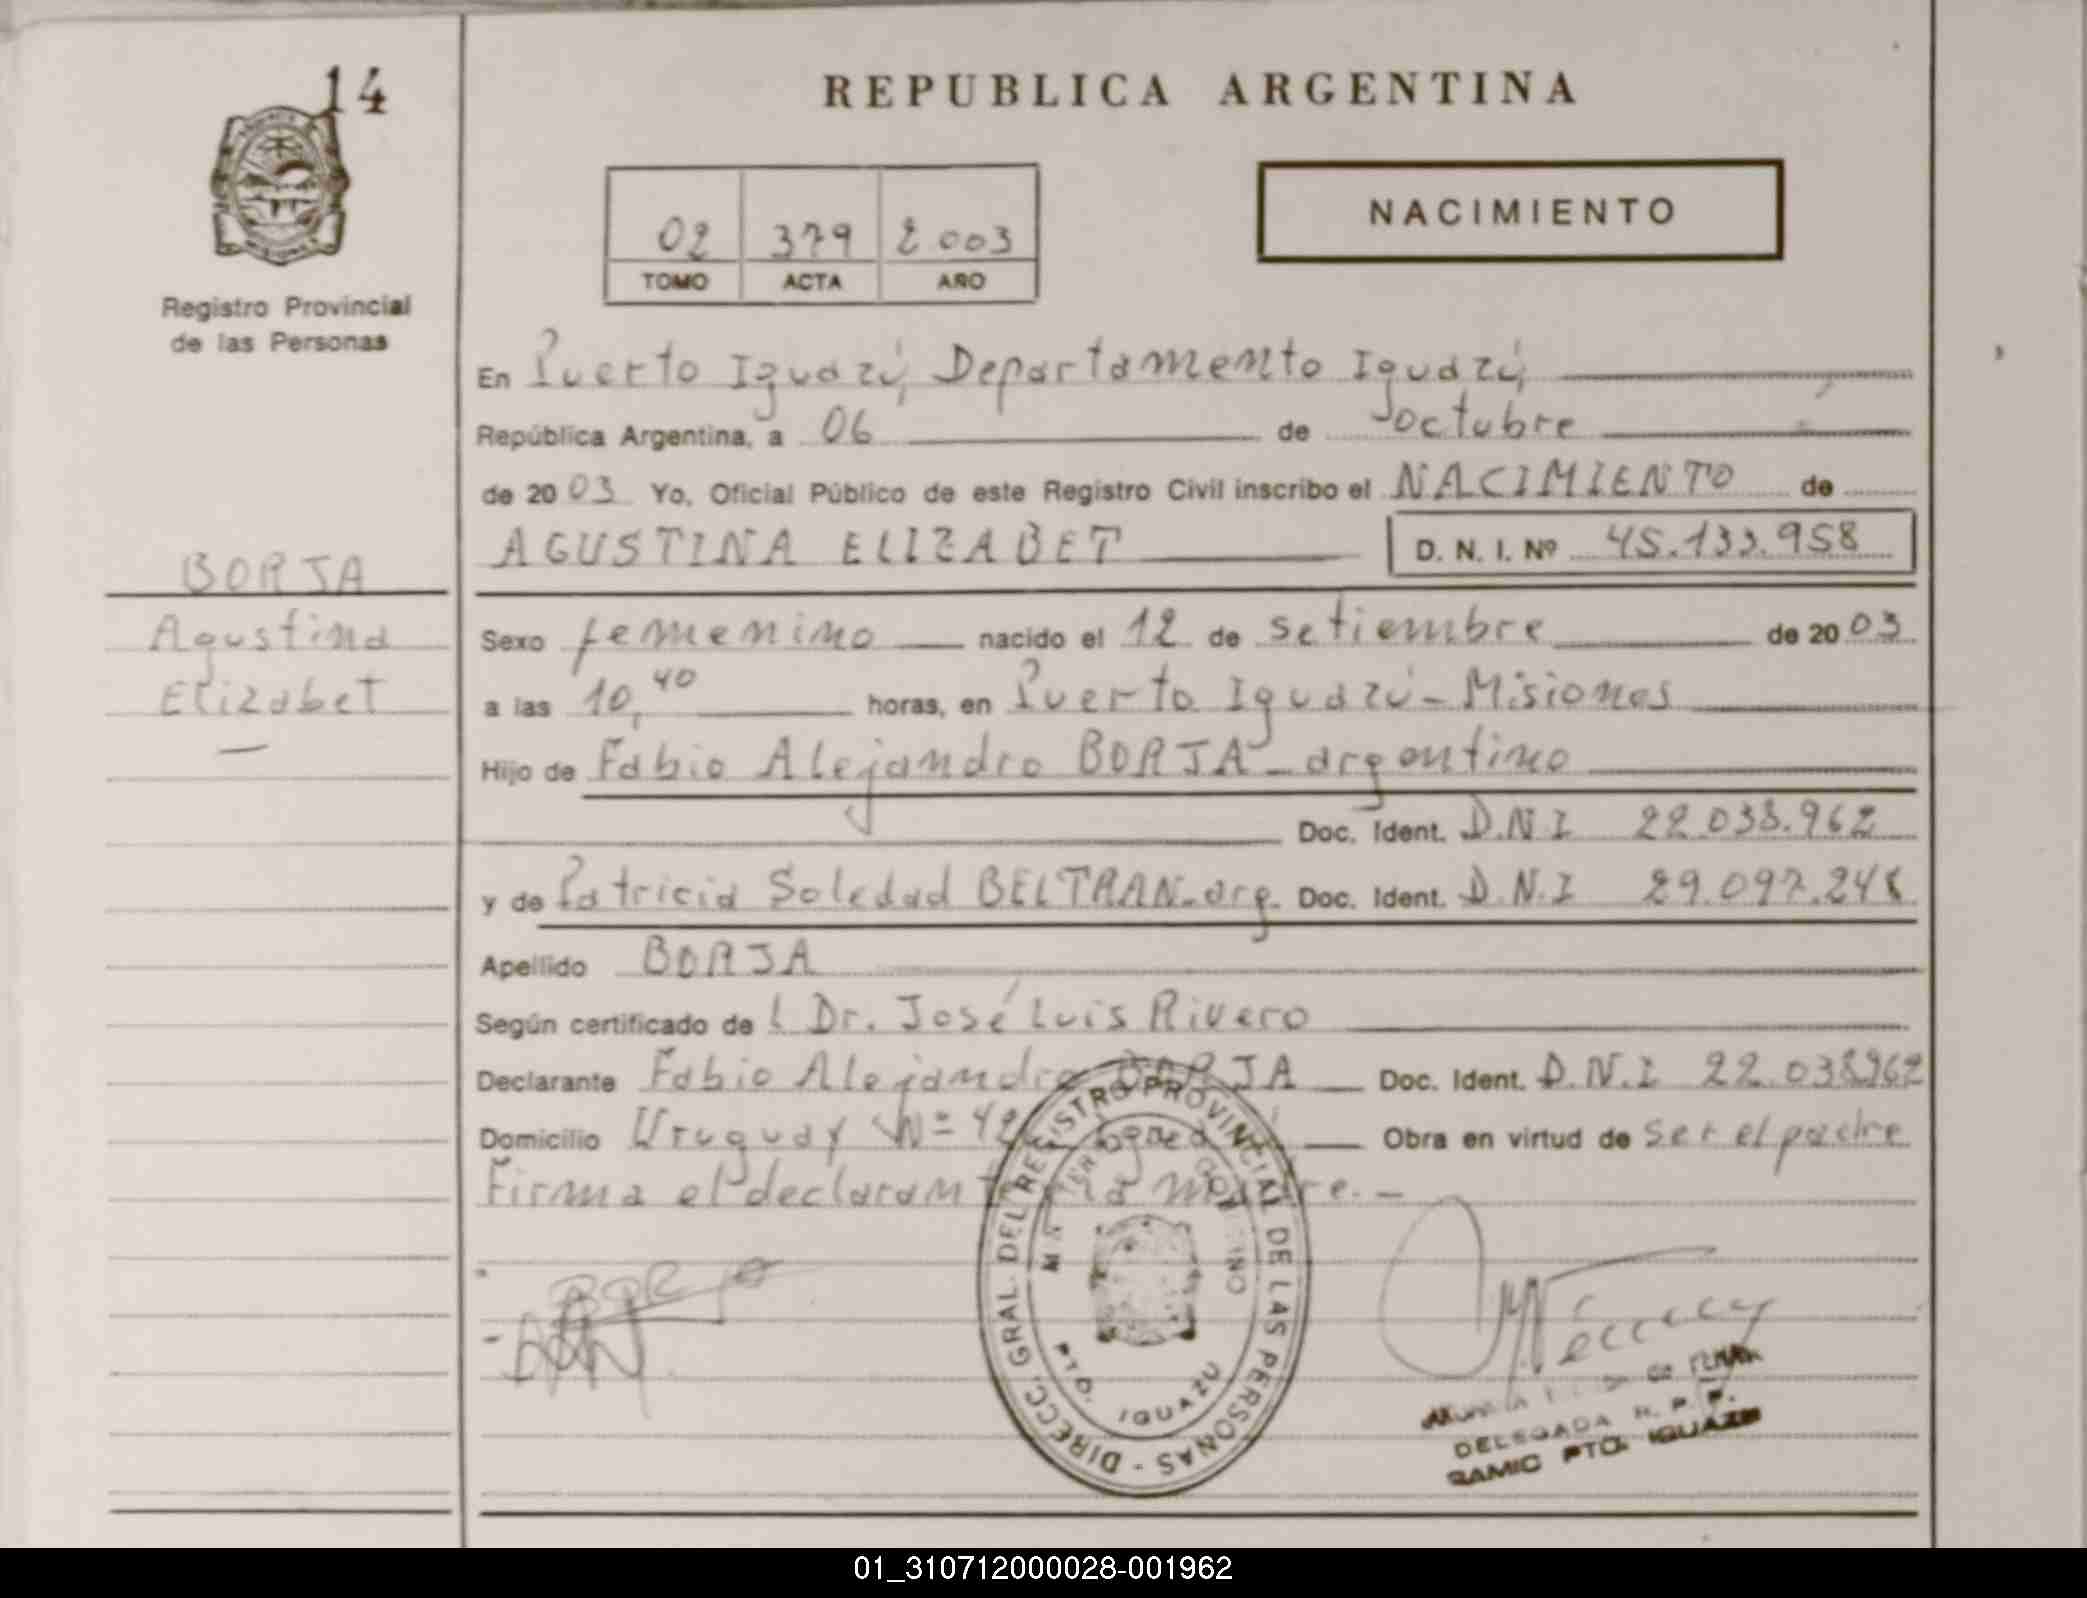 14
REPUBLICA ARGENTINA
NACIMIENTO
02 379 2003
TOMO ACTA AÑO
Registro Provincial
de las Personas
En Puerto Iguazú, Departamento Iguazú,
República Argentina, a 06 de octubre
de 2003 Yo, Oficial Público de este Registro Civil inscribo el NACIMIENTO de
AGUSTINA ELIZABET D. N. I. Nº 45.133.958
BORJA
Agustina
Elizabet
Sexo femenino nacido el 12 de setiembre de 2003
a las 10,40 horas, en Puerto Iguazú - Misiones
Hijo de Fabio Alejandro BORJA - argentino
Doc. Ident. D.N.I 22.038.962
y de Patricia Soledad BELTRAN - arg. Doc. Ident. D.N.I 29.097.248
Apellido BORJA
Según certificado de l Dr. José Luis Rivero
Declarante Fabio Alejandro BORJA Doc. Ident. D.N.I 22.038962
Domicilio Uruguay Nº Obra en virtud de ser el padre
Firma el declarante la madre. -
DIRECC. GRAL. DEL REGISTRO PROVINCIAL DE LAS PERSONAS -
PTO. IGUAZU
DELEGADA R. P. P.
SAMIC PTO. IGUAZU
01_310712000028-001962